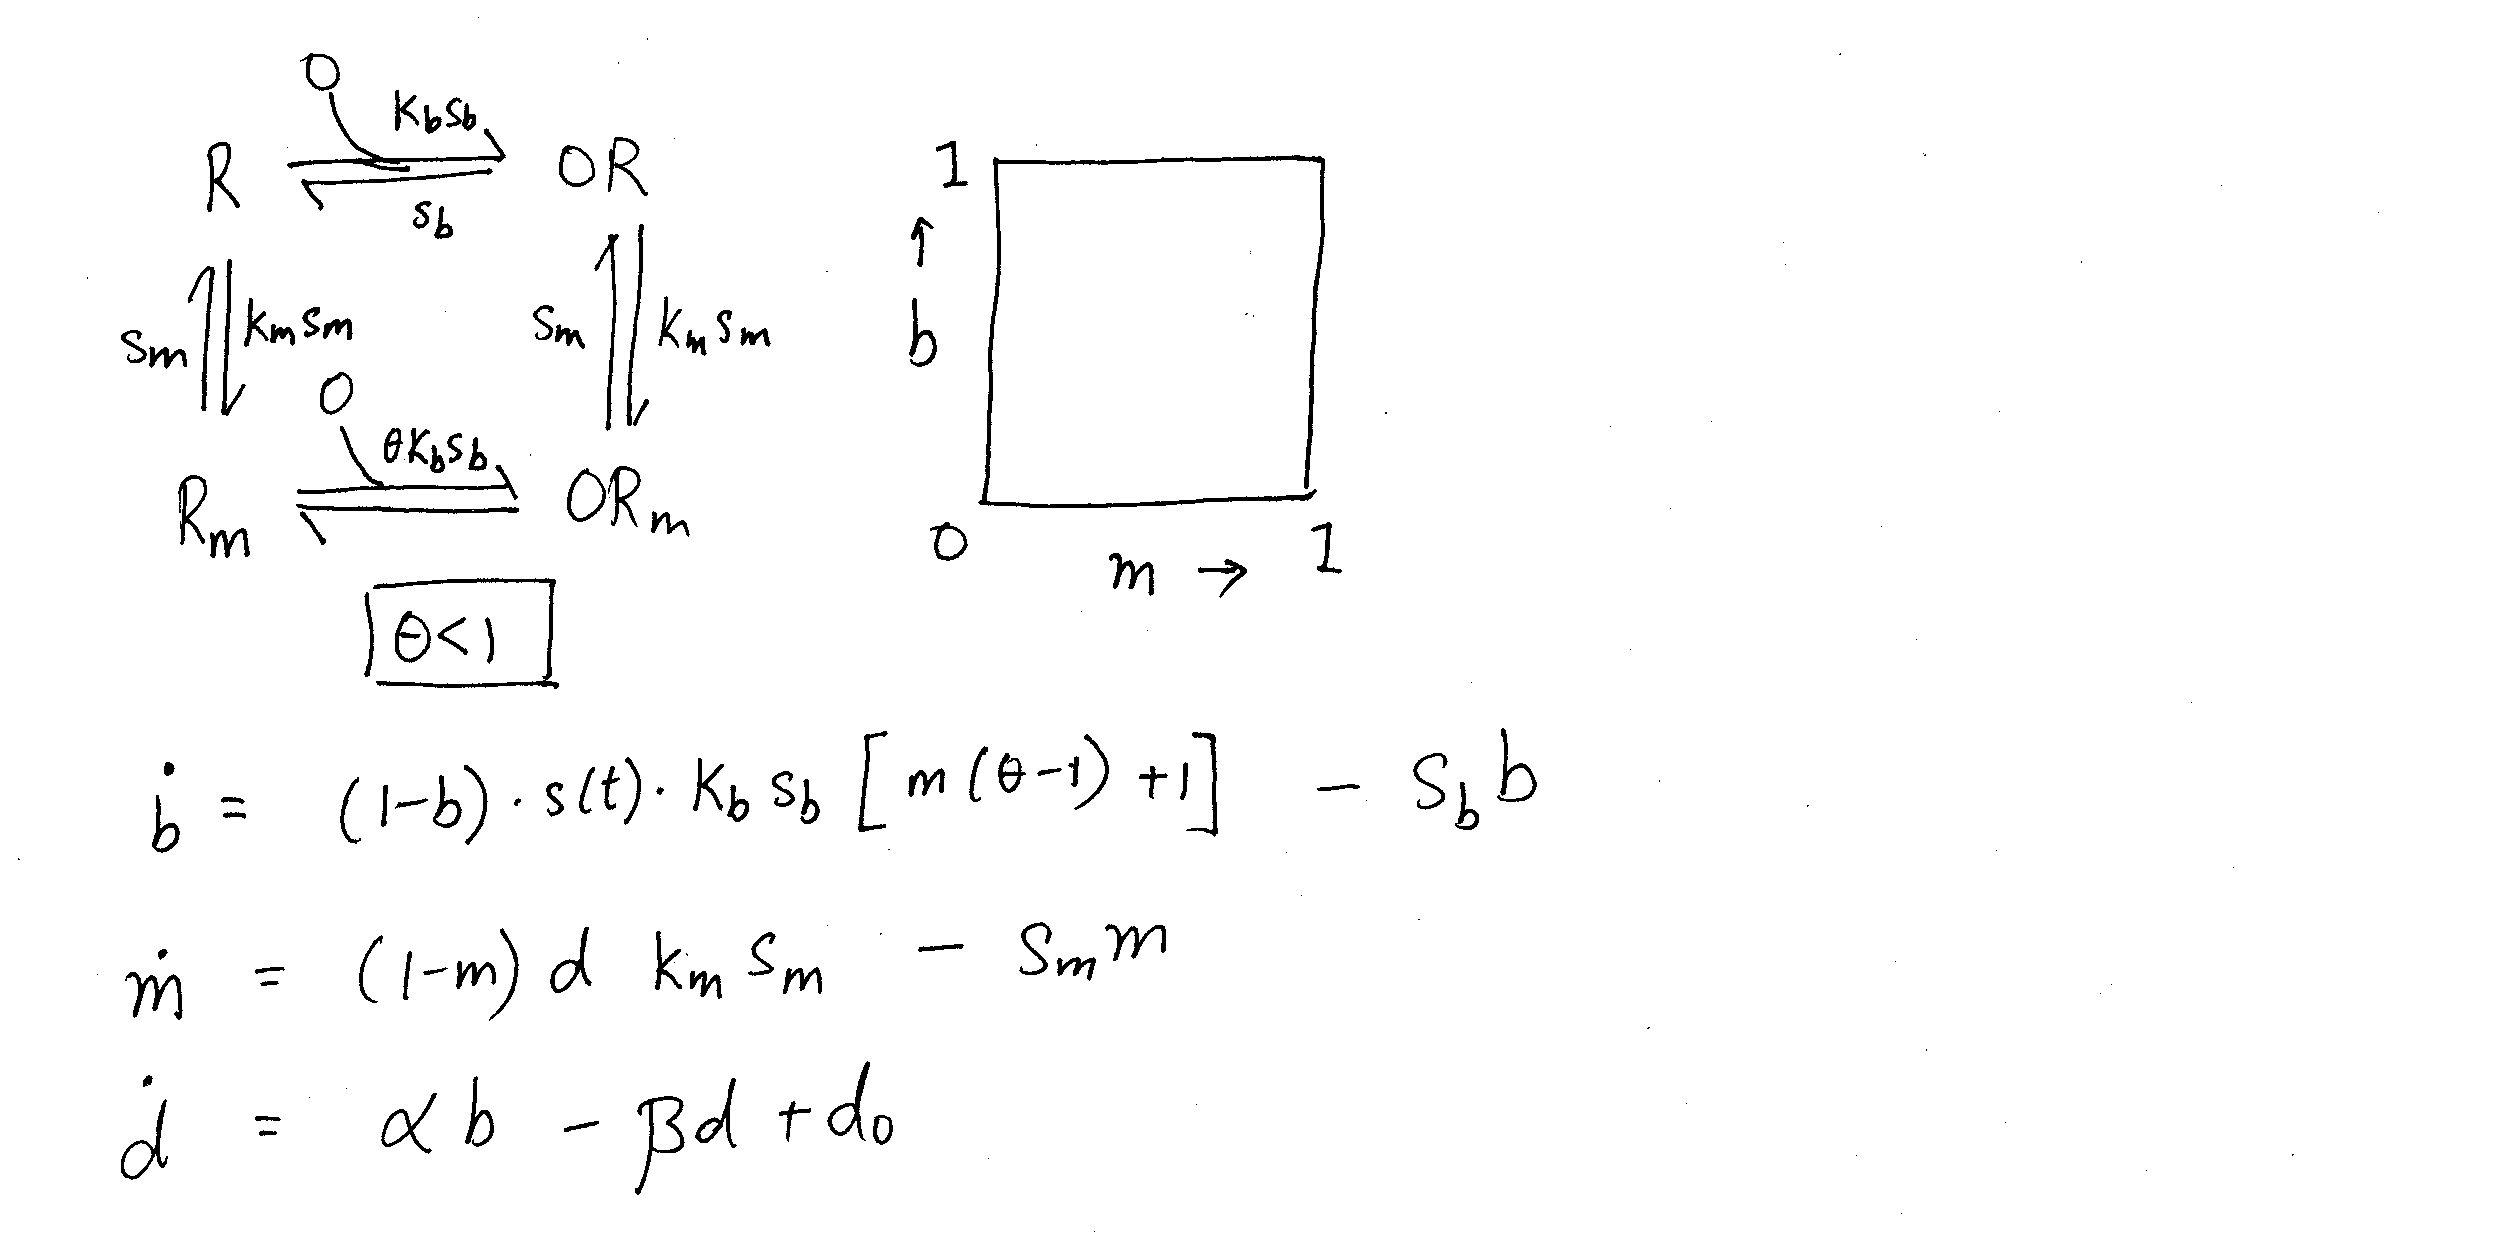 O
K_b s_b
R ⇌ OR
s_b
s_m k_m s_m s_m k_m s_m
O
θ K_b s_b
R_m ⇌ OR_m
θ<1
1
↑
b
0 m → 1
ḃ = (1-b) · s(t) · K_b s_b [ m(θ-1) +1 ] - s_b b
ṁ = (1-m) d k_m s_m - s_m m
ḋ = α b - β d + d_0